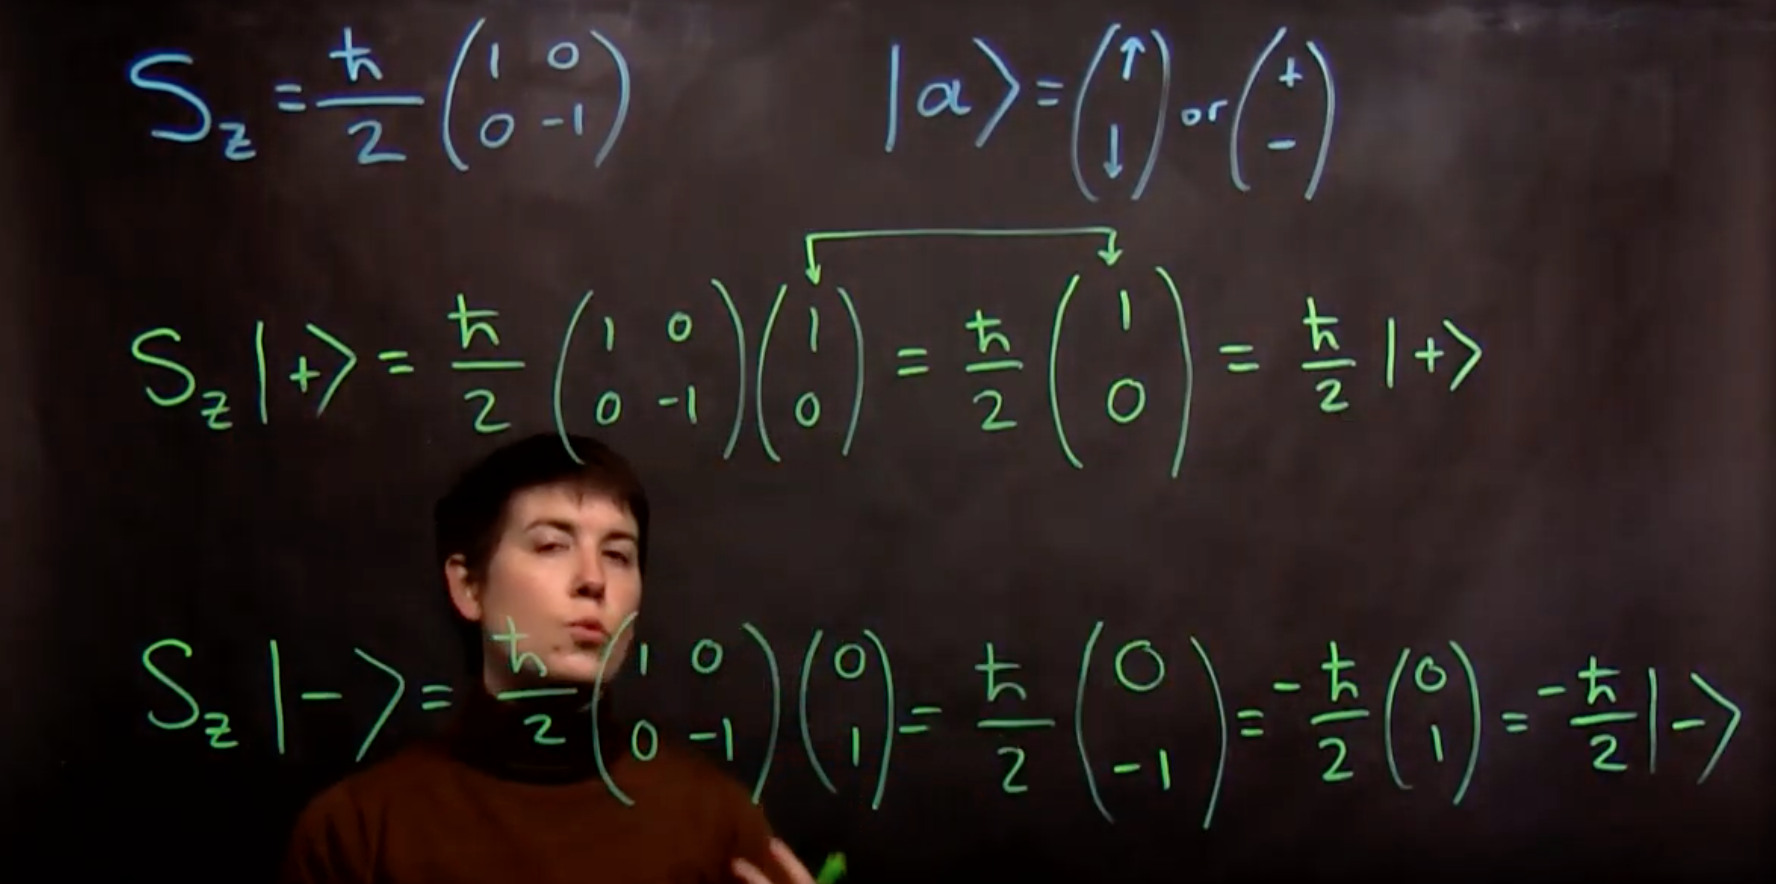 S_z = ℏ/2 (1 0; 0 -1)    |a⟩ = (↑; ↓) or (+; -)
S_z |+⟩ = ℏ/2 (1 0; 0 -1) (1; 0) = ℏ/2 (1; 0) = ℏ/2 |+⟩
S_z |-⟩ = ℏ/2 (1 0; 0 -1) (0; 1) = ℏ/2 (0; -1) = -ℏ/2 (0; 1) = -ℏ/2 |-⟩